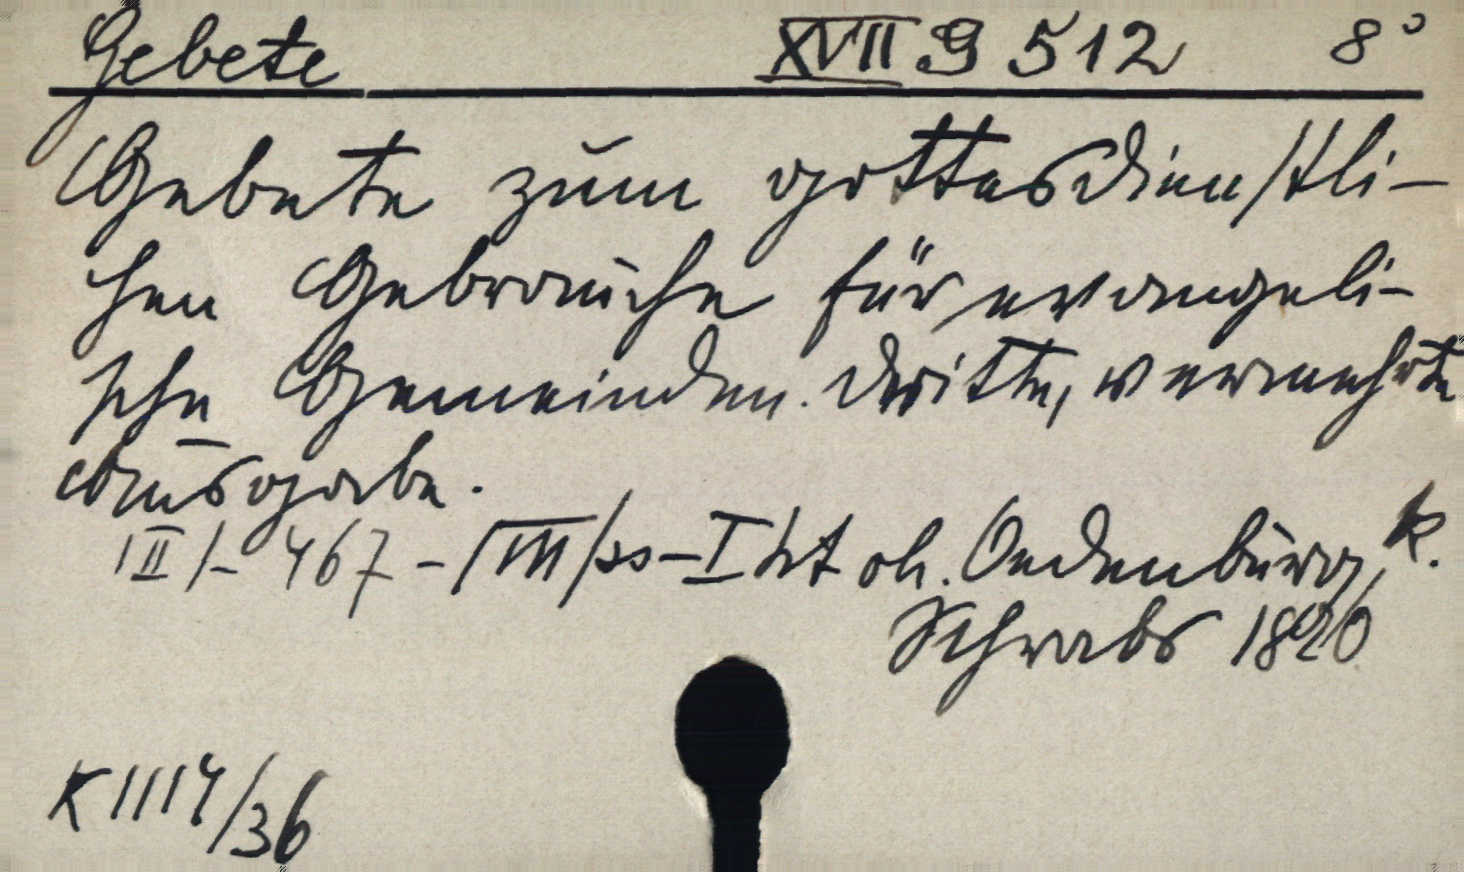 Gebete XVII G 512 8°
Gebete zum gottesdienstli-
chen Gebrauche für evangeli-
sche Gemeinden. Dritte, vermehrte
Ausgabe.
II 467 - I Oedenburg, K.
Schwabs 1820
K 1114/36